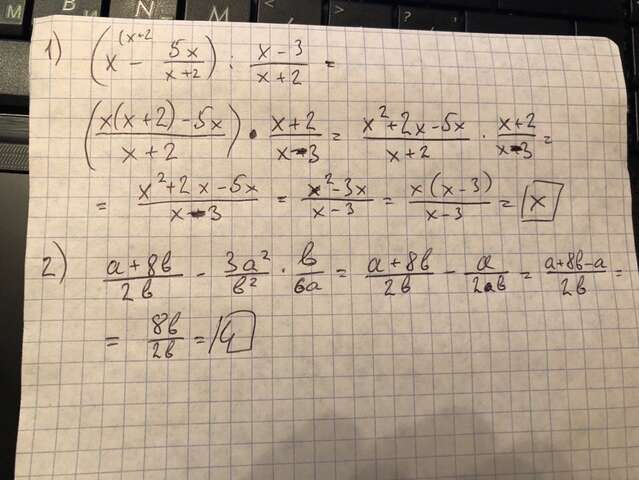 1) (x^(x+2 - 5x/(x+2)) : (x-3)/(x+2) =
((x(x+2)-5x)/(x+2)) · (x+2)/(x-3) = (x²+2x-5x)/(x+2) · (x+2)/(x-3) =
= (x²+2x-5x)/(x-3) = (x²-3x)/(x-3) = (x(x-3))/(x-3) = x
2) (a+8b)/(2b) - (3a²)/(b²) · b/(6a) = (a+8b)/(2b) - a/(2b) = (a+8b-a)/(2b) =
= 8b/2b = 4